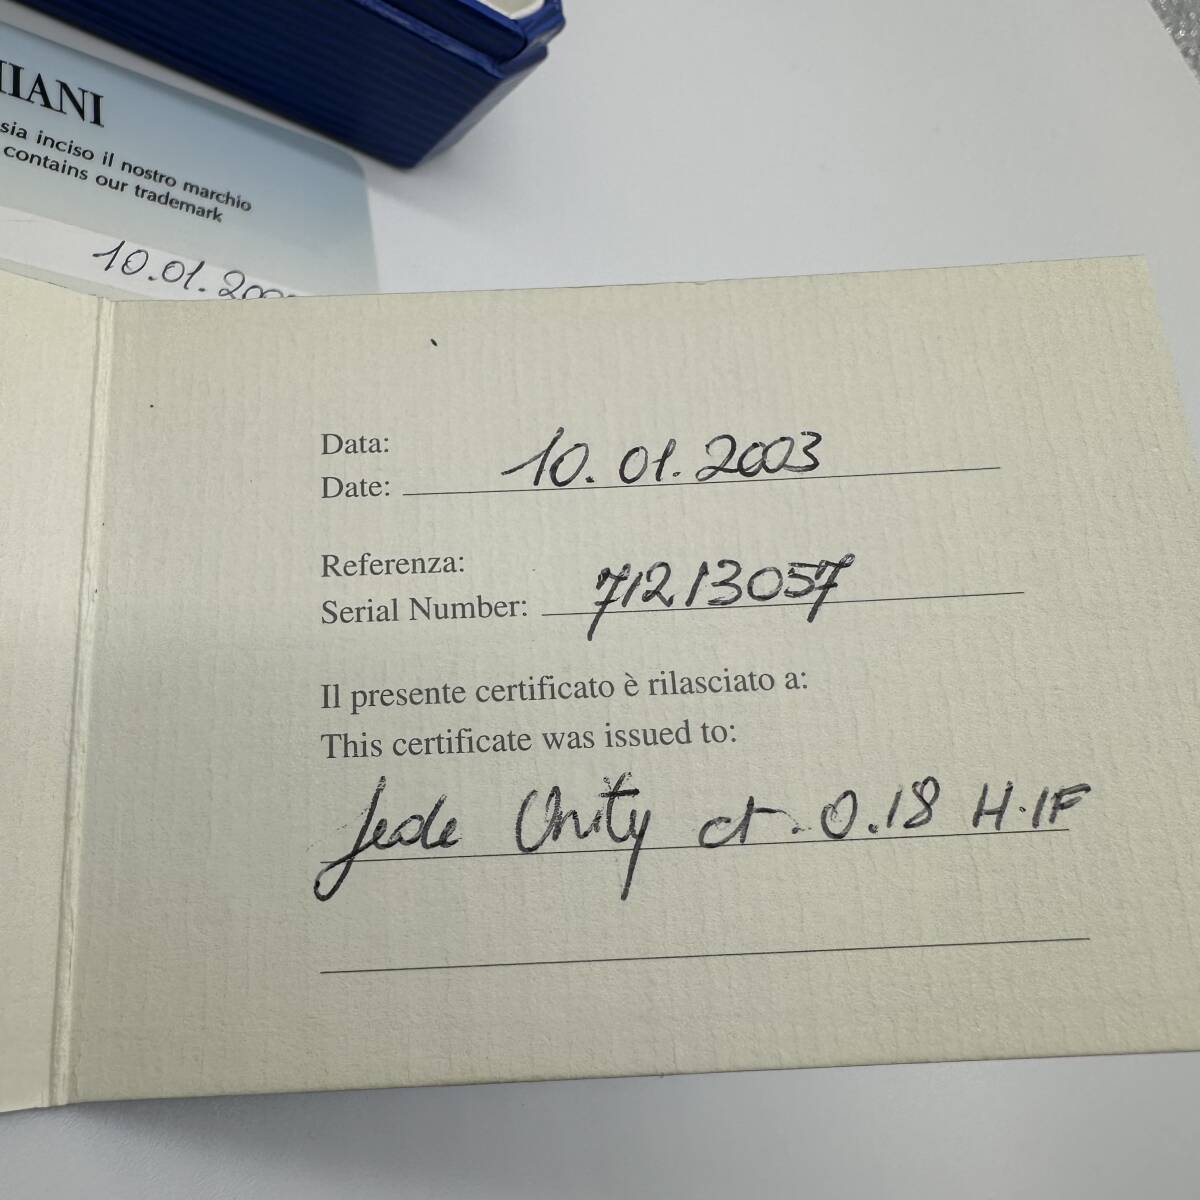 IANI
sia inciso il nostro marchio
contains our trademark
10.01.200
Data:
Date: 10.01.2003
Referenza:
Serial Number: 71213057
Il presente certificato è rilasciato a:
This certificate was issued to:
fede Unity ct. 0.18 H.IF